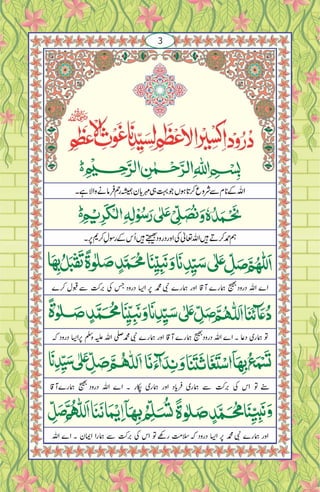 3
دُرُوْدِ اِکْسِیْرِ اَعْظَم
بِسْمِ اللّٰهِ الرَّحْمٰنِ الرَّحِيْمِ
اللہ کے نام سے شروع کرتا ہوں جو بہت ہی مہربان ہمیشہ رحم فرمانے والا ہے۔
نَحْمَدُهٗ وَ نُصَلِّيْ عَلٰى رَسُوْلِهِ الْكَرِيْمِ
ہم حمد کرتے ہیں اللہ تعالیٰ کی اور درود بھیجتے ہیں اُس کے رسول کریم پر۔
اَللّٰهُمَّ صَلِّ عَلٰى سَيِّدِنَا وَنَبِيِّنَا مُحَمَّدٍ صَلٰوةً تَقْبَلُ بِهَا
اے اللہ درود بھیج ہمارے آقا اور ہمارے نبی محمد پر ایسا درود جس کی برکت سے قبول کرے
دُعَآئَنَا اَللّٰهُمَّ صَلِّ عَلٰى سَيِّدِنَا وَنَبِيِّنَا مُحَمَّدٍ صَلٰوةً
تو ہماری دعا ۔ اے اللہ درود بھیج ہمارے آقا اور ہمارے نبی محمد صلی اللہ علیہ وسلم پر ایسا درود کہ
تَسْمَعُ بِهَا اسْتِغَاثَتَنَا وَنِدَآءَنَا اَللّٰهُمَّ صَلِّ عَلٰى سَيِّدِنَا
سنے تو اس کی برکت سے ہماری فریاد اور ہماری پکار ۔ اے اللہ درود بھیج ہمارے آقا
وَنَبِيِّنَا مُحَمَّدٍ صَلٰوةً تُسَلِّمُ بِهَآ اِيْمَانَنَا اَللّٰهُمَّ صَلِّ
اور ہمارے نبی محمد پر ایسا درود کہ سلامت رکھے تو اس کی برکت سے ہمارا ایمان ۔ اے اللہ